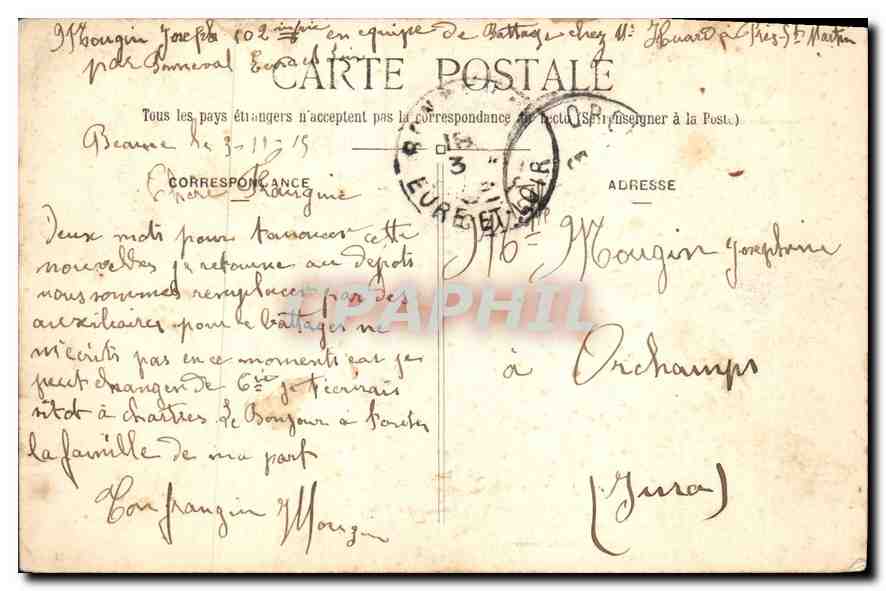 Mougin Joseph 102 inf en équipe de Battage chez Mr Huard à Prés-St Martin
par Bonneval Eure et
CARTE POSTALE
Tous les pays étrangers n'acceptent pas la correspondance au recto (Se renseigner à la Poste)
Beaune le 3-11-15
CORRESPONDANCE
ADRESSE
Chere Frangine
BONNEVAL
18
3
EURE-ET-LOIR
ORC
Deux mots pour tanoncer cette
nouvelles je retourne au depots
nous sommes remplacer par des
auxiliaires pour le battages ne
m'ecrits pas en ce moments car je
peut changer de Cie je t'écrirais
sitot à chartres Le Bonjour à toutes
la famille de ma part
Ton frangin Mougin
Mougin Josephine
à Orchamps
(Jura)
CPAPHIL